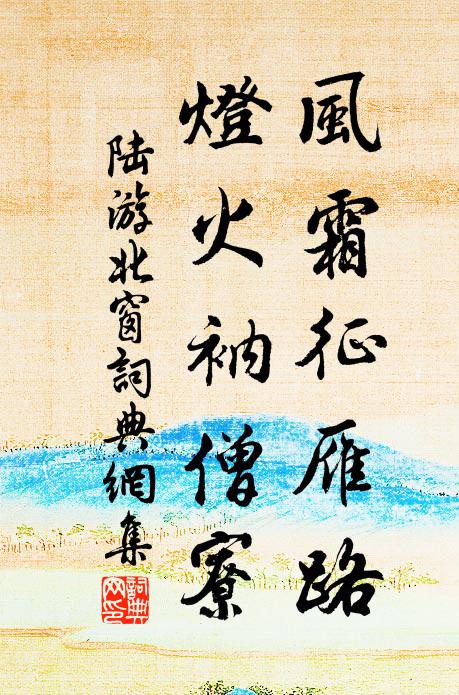 風霜征雁路
燈火衲僧寮
陆游北窗詞典網集
詞典